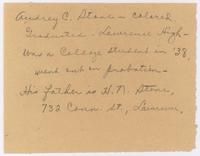 Audrey C. Stone – colored
Graduated – Lawrence High –
was a College student in '38,
went out on probation –
His father is H. N. Stone,
732 Conn. St., Lawrence.